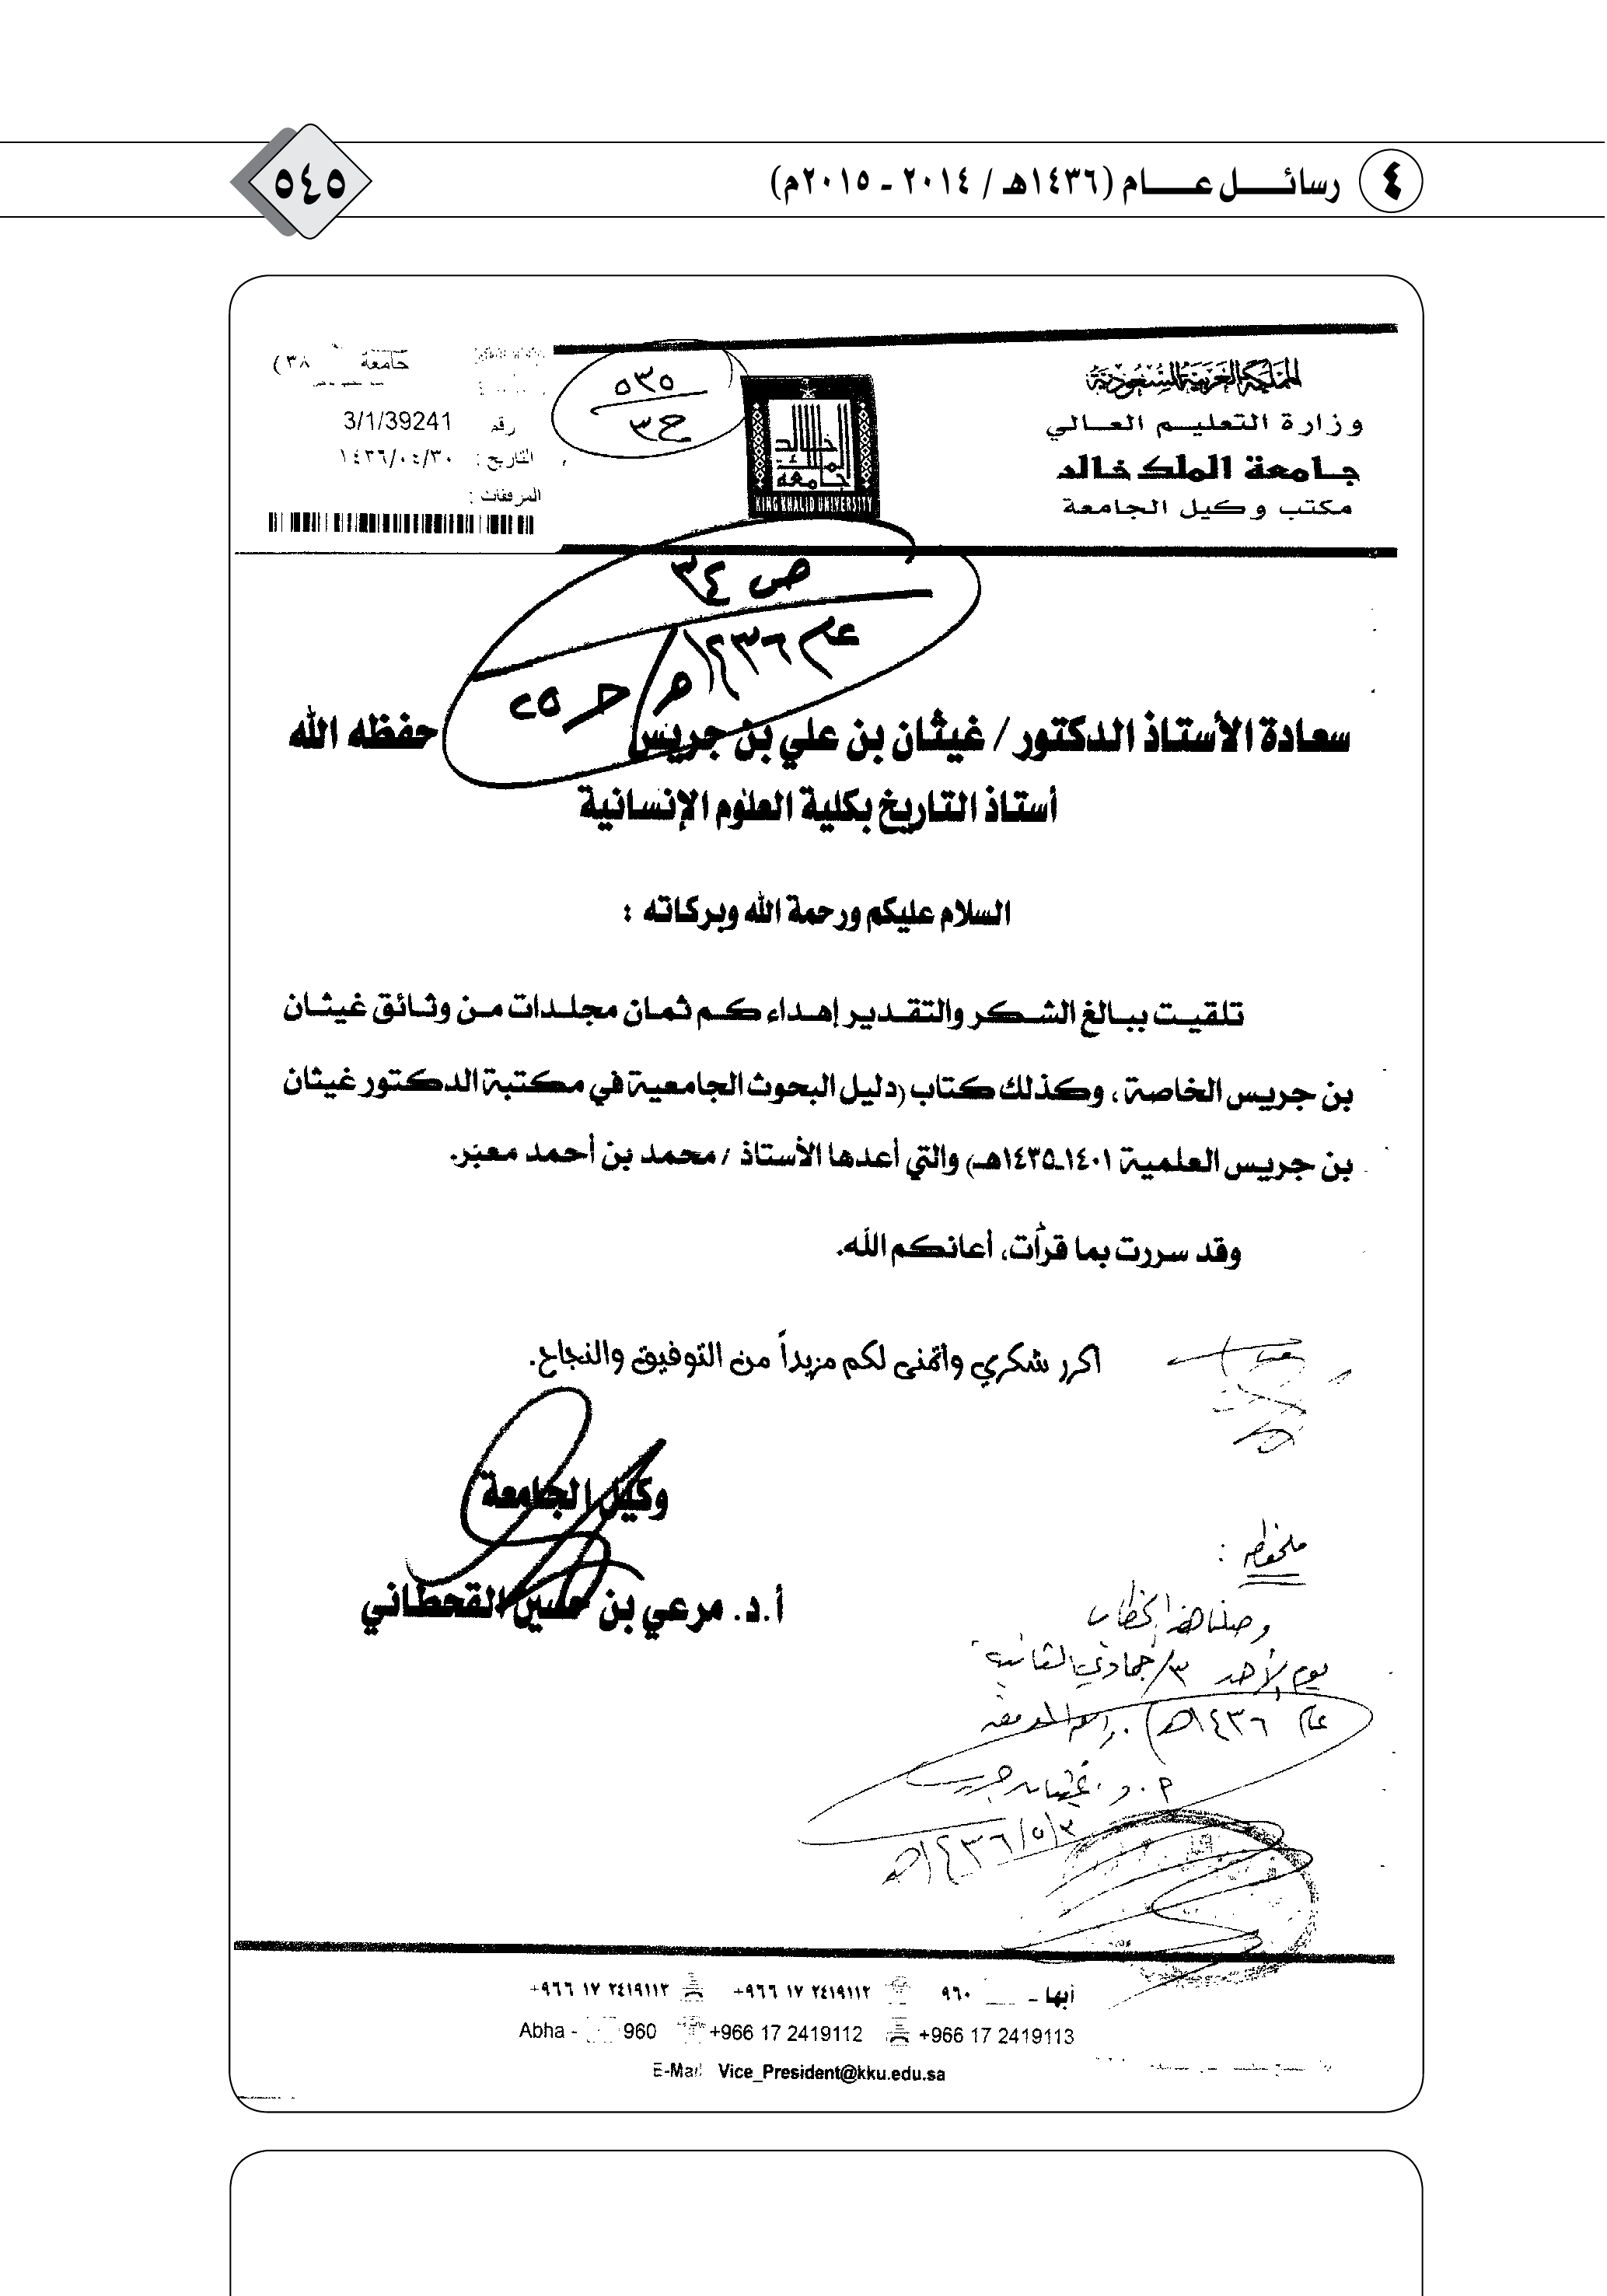 ٤ رسائــل عــــام (١٤٣٦هـ / ٢٠١٤ - ٢٠١٥م)
٥٤٥
المملكة العربية السعودية
وزارة التعليم العالي
جامعة الملك خالد
مكتب وكيل الجامعة
جامعة الملك خالد
KING KHALID UNIVERSITY
٥٣٥
ح٣
جامعة ٣٨)
رقم 3/1/39241
التاريخ : ١٤٣٦/٠٤/٣٠
المرفقات :
ص ٣٤
عام ١٤٣٦هـ / حـ ٢٥
سعادة الأستاذ الدكتور / غيثان بن علي بن جريس حفظه الله
أستاذ التاريخ بكلية العلوم الإنسانية
السلام عليكم ورحمة الله وبركاته :
تلقيت ببالغ الشكر والتقدير إهداءكم ثمان مجلدات من وثائق غيثان
بن جريس الخاصة ، وكذلك كتاب (دليل البحوث الجامعية في مكتبة الدكتور غيثان
بن جريس العلمية ١٤٠١ـ١٤٣٥هـ) والتي أعدها الأستاذ / محمد بن أحمد معبر.
وقد سررت بما قرأت، أعانكم الله.
اكرر شكري واتمنى لكم مزيداً من التوفيق والنجاح.
وكيل الجامعة
أ.د. مرعي بن حسين القحطاني
ملحوظه :
وصلنا هذا الخطاب
يوم الأحد ٣/جمادي الثانية
عام ١٤٣٦هـ). والله الموفق
أ. د. غيثان جريس
٣/٥/١٤٣٦هـ
أبها - ٩٦٠ +٩٦٦ ١٧ ٢٤١٩١١٢ +٩٦٦ ١٧ ٢٤١٩١١٣
Abha - 960 +966 17 2419112 +966 17 2419113
E-Mail Vice_President@kku.edu.sa